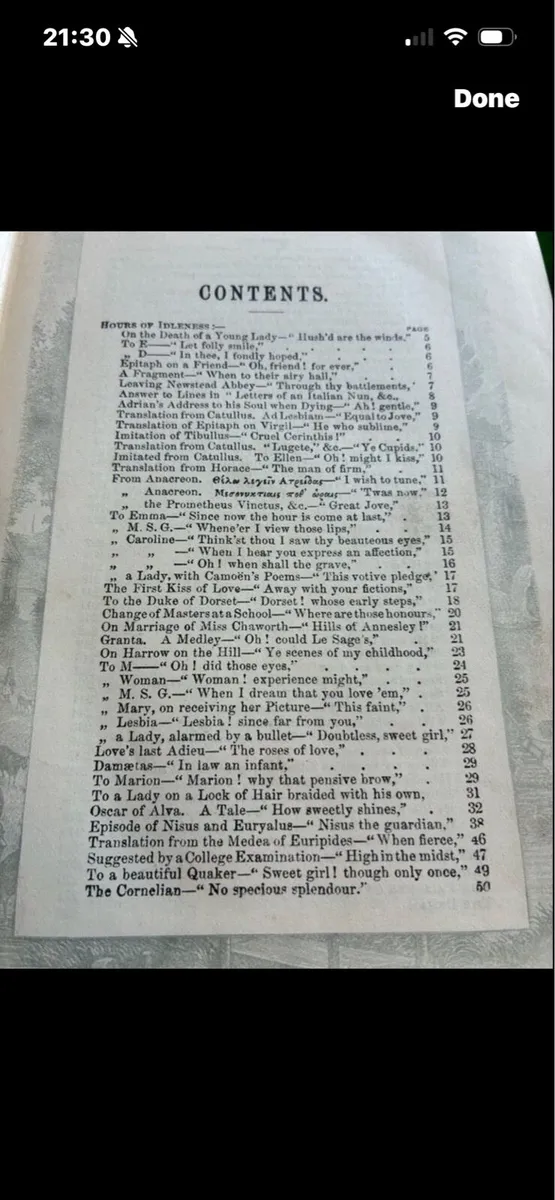 21:30
Done
CONTENTS.
HOURS OF IDLENESS:—
PAGE
On the Death of a Young Lady—“Hush'd are the winds.” 5
To E——“Let folly smile,” . . . . . 6
„ D——“In thee, I fondly hoped,” . . . 6
Epitaph on a Friend—“Oh, friend! for ever,” . . 6
A Fragment—“When to their airy hall,” . . 7
Leaving Newstead Abbey—“Through thy battlements,' 7
Answer to Lines in “Letters of an Italian Nun, &c., 8
Adrian's Address to his Soul when Dying—“Ah! gentle,” 9
Translation from Catullus. Ad Lesbiam—“Equal to Jove,” 9
Translation of Epitaph on Virgil—“He who sublime,” 9
Imitation of Tibullus—“Cruel Cerinthis!” . . 10
Translation from Catullus. “Lugete,” &c.—“Ye Cupids,” 10
Imitated from Catullus. To Ellen—“Oh! might I kiss,” 10
Translation from Horace—“The man of firm,” . . 11
From Anacreon. Θέλω λεγεῖν Ατρείδας—“I wish to tune,” 11
„ Anacreon. Μεσονυκτίαις ποθ' ὥραις—“'Twas now,” 12
„ the Prometheus Vinctus, &c.—“Great Jove,” 13
To Emma—“Since now the hour is come at last,” . 13
„ M. S. G.—“Whene'er I view those lips,” . . 14
„ Caroline—“Think'st thou I saw thy beauteous eyes,” 15
„ „ —“When I hear you express an affection,” 15
„ „ —“Oh! when shall the grave,” . . 16
„ a Lady, with Camoën's Poems—“This votive pledge,' 17
The First Kiss of Love—“Away with your fictions,” 17
To the Duke of Dorset—“Dorset! whose early steps,” 18
Change of Masters at a School—“Where are those honours,” 20
On Marriage of Miss Chaworth—“Hills of Annesley!” 21
Granta. A Medley—“Oh! could Le Sage's,” . 21
On Harrow on the Hill—“Ye scenes of my childhood,” 23
To M——“Oh! did those eyes,” . . . . 24
„ Woman—“Woman! experience might,” . . 25
„ M. S. G.—“When I dream that you love 'em,” . 25
„ Mary, on receiving her Picture—“This faint,” . 26
„ Lesbia—“Lesbia! since far from you,” . . 26
„ a Lady, alarmed by a bullet—“Doubtless, sweet girl,” 27
Love's last Adieu—“The roses of love,” . . . 28
Damætas—“In law an infant,” . . . . 29
To Marion—“Marion! why that pensive brow,” . 29
To a Lady on a Lock of Hair braided with his own, 31
Oscar of Alva. A Tale—“How sweetly shines,” . 32
Episode of Nisus and Euryalus—“Nisus the guardian,” 38
Translation from the Medea of Euripides—“When fierce,” 46
Suggested by a College Examination—“High in the midst,” 47
To a beautiful Quaker—“Sweet girl! though only once,” 49
The Cornelian—“No specious splendour.” 50